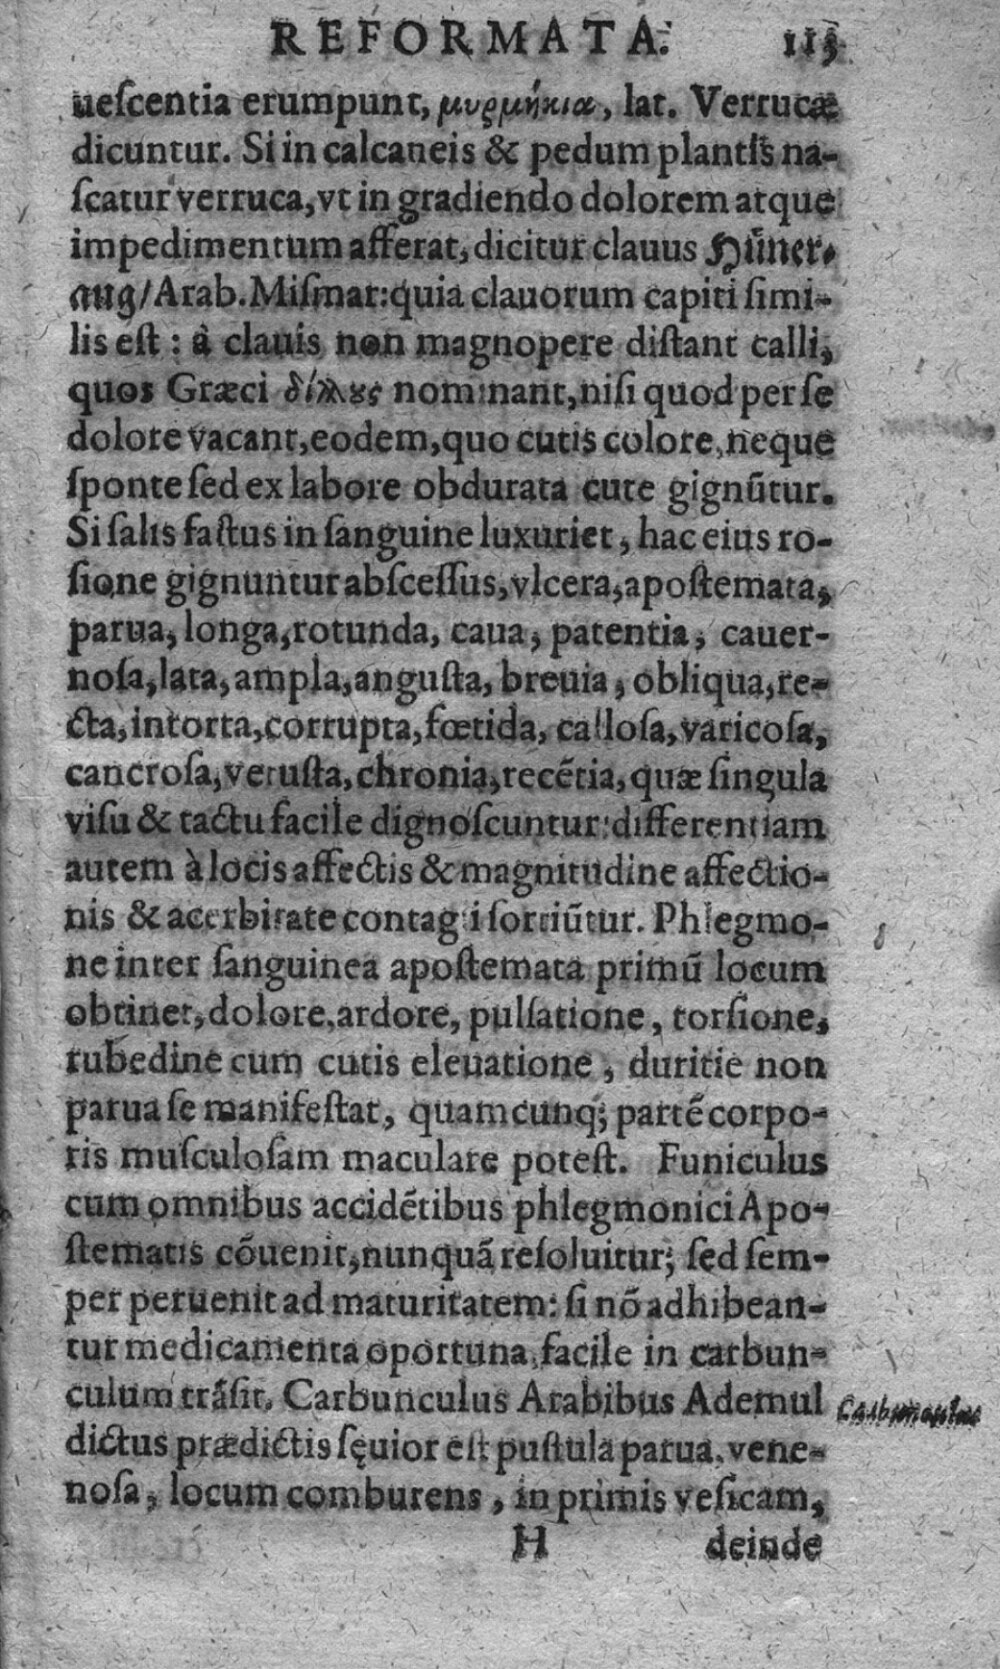 REFORMATA. 113
ueſcentia erumpunt, μυρμήκια, lat. Verrucæ
dicuntur. Si in calcaneis & pedum plantis na-
ſcatur verruca, vt in gradiendo dolorem atque
impedimentum afferat, dicitur clauus Hüner-
aug/ Arab. Miſmar: quia clauorum capiti ſimi-
lis eſt : à clauis non magnopere diſtant calli,
quos Græci nominant, niſi quod per ſe
dolore vacant, eodem, quo cutis colore, neque
ſponte ſed ex labore obdurata cute gignūtur.
Si ſalis faſtus in ſanguine luxuriet, hac eius ro-
ſione gignuntur abſceſſus, vlcera, apoſtemata,
parua, longa, rotunda, caua, patentia, cauer-
noſa, lata, ampla, anguſta, breuia, obliqua, re-
cta, intorta, corrupta, fœtida, calloſa, varicoſa,
cancroſa, vetuſta, chronia, recētia, quæ ſingula
viſu & tactu facile dignoſcuntur: differentiam
autem à locis affectis & magnitudine affectio-
nis & acerbitate contagii ſortiūtur. Phlegmo-
ne inter ſanguinea apoſtemata primū locum
obtinet, dolore, ardore, pulſatione, torſione,
rubedine cum cutis eleuatione, duritie non
parua ſe manifeſtat, quamcunq; partē corpo-
ris muſculoſam maculare poteſt. Funiculus
cum omnibus accidētibus phlegmonici Apo-
ſtematis cōuenit, nunquā reſoluitur, ſed ſem-
per peruenit ad maturitatem: ſi nō adhibean-
tur medicamenta oportuna, facile in carbun-
culum trāſit. Carbunculus Arabibus Ademul
Carbunculus
dictus prædictis ſęuior eſt puſtula parua, vene-
noſa, locum comburens, in primis veſicam,
H deinde